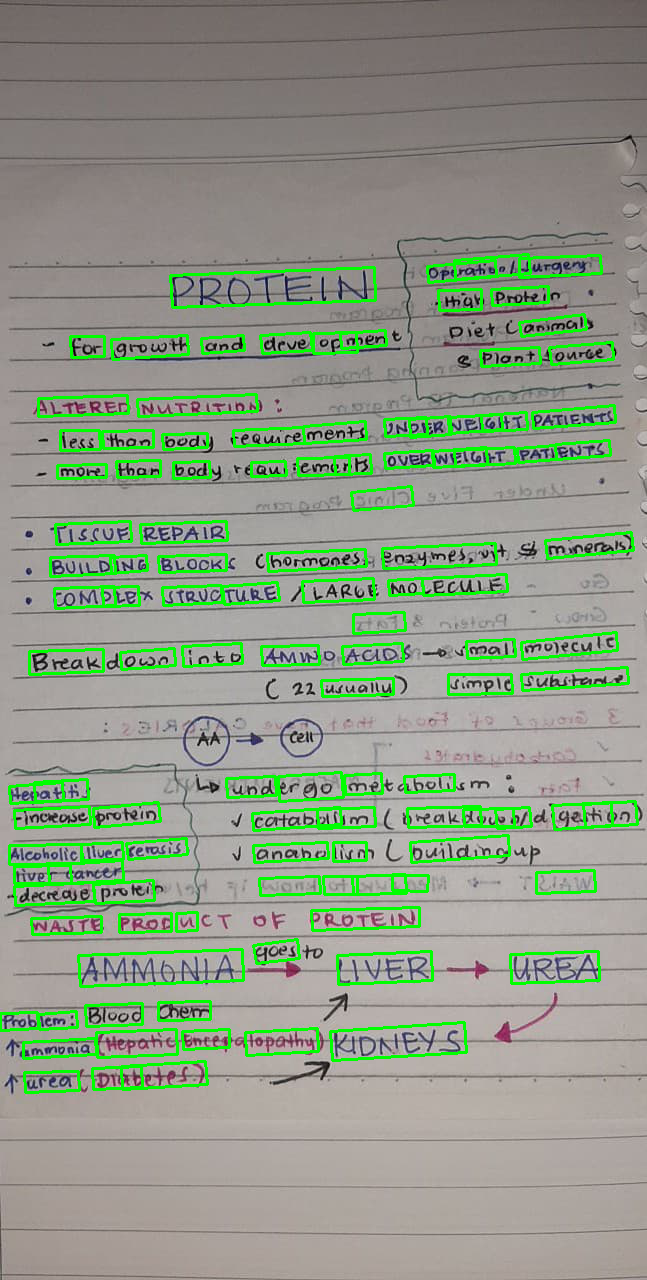 PROTEIN
- for growth and development
Operation/Surgery:
High Protein
Diet (animals
& Plant source)
ALTERED NUTRITION:
- less than body requirements UNDERWEIGHT PATIENTS
- more than body requirements OVERWEIGHT PATIENTS
• TISSUE REPAIR
• BUILDING BLOCKS (hormones, enzymes, vit & minerals)
• COMPLEX STRUCTURE / LARGE MOLECULE
Breakdown into AMINO ACIDS → small molecule
(22 usually) simple substance
AA → Cell
↳ undergo metabolism:
✓ catabolism (breakdown/digestion)
✓ anabolism (building up
Hepatitis
- increase protein
Alcoholic liver cerosis
liver cancer
- decrease protein
WASTE PRODUCT OF PROTEIN
AMMONIA goes to → LIVER → UREA
KIDNEYS
Problem: Blood Chem
↑ ammonia (Hepatic Encephalopathy)
↑ urea (Diabetes)